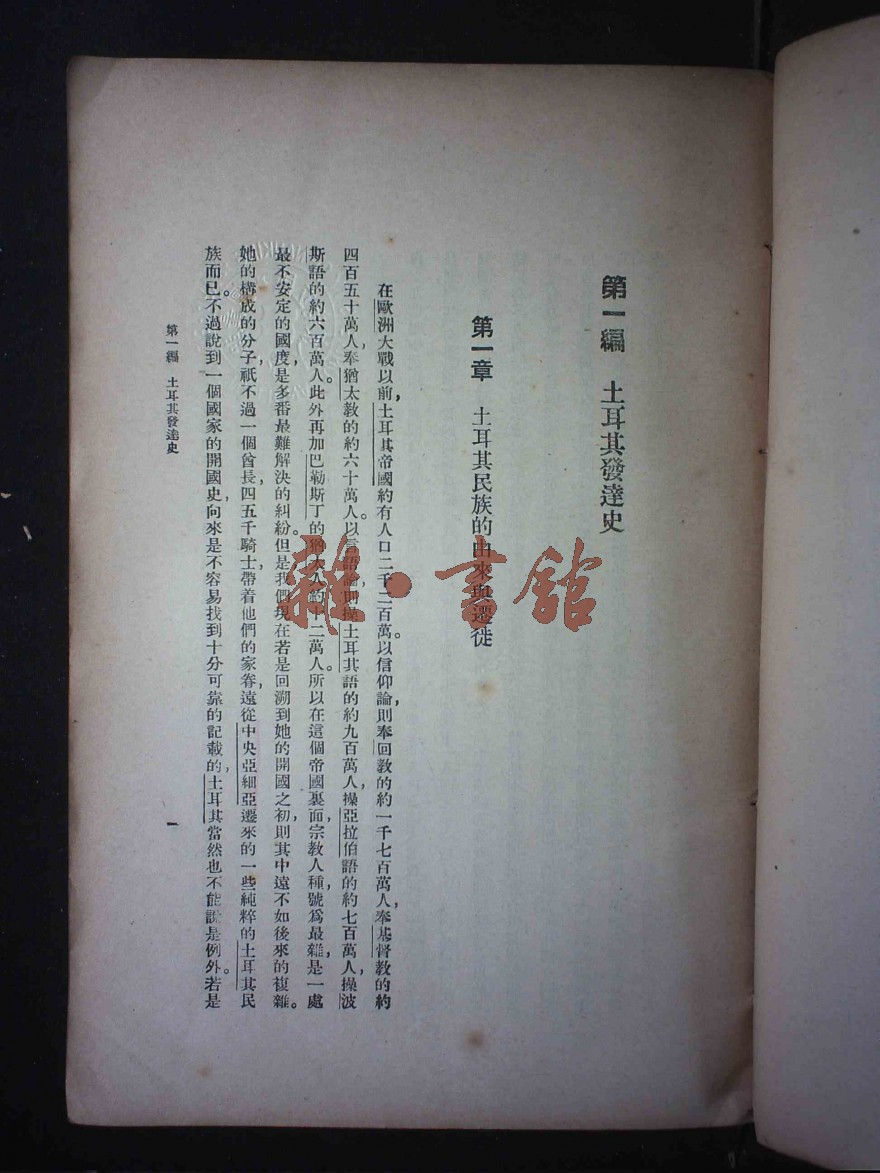 第一編　土耳其發達史
第一章　土耳其民族的由來與遷徙
在歐洲大戰以前，土耳其帝國約有人口二千二百萬。以信仰論，則奉回教的約一千七百萬人，奉基督教的約
四百五十萬人，奉猶太教的約六十萬人。以言語論，則操土耳其語的約九百萬人，操亞拉伯語的約七百萬人，操波
斯語的約六百萬人。此外再加巴勒斯丁的猶太人約十二萬人。所以在這個帝國裏面，宗教人種，號爲最雜，是一處
最不安定的國度，是多番最難解決的糾紛。但是我們現在若是回溯到她的開國之初，則其中遠不如後來的複雜。
她的構成的分子，祇不過一個酋長，四五千騎士，帶着他們的家眷，遠從中央亞細亞遷來的一些純粹的土耳其民
族而已。不過說到一個國家的開國史，向來是不容易找到十分可靠的記載的，土耳其當然也不能說是例外。若是
第一編　土耳其發達史
一
雜·書館